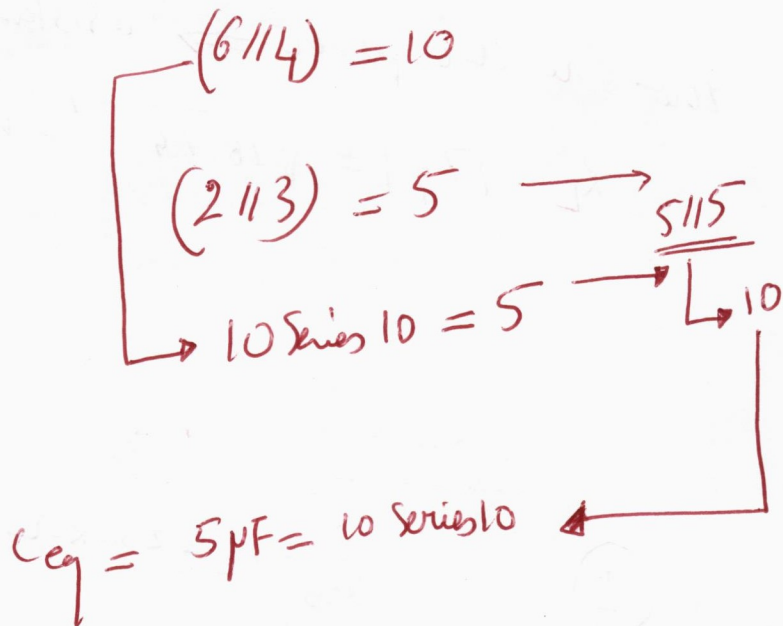 (6//4) = 10
(2//3) = 5
5//5
10 Series 10 = 5
10
Ceq = 5µF = 10 Series 10